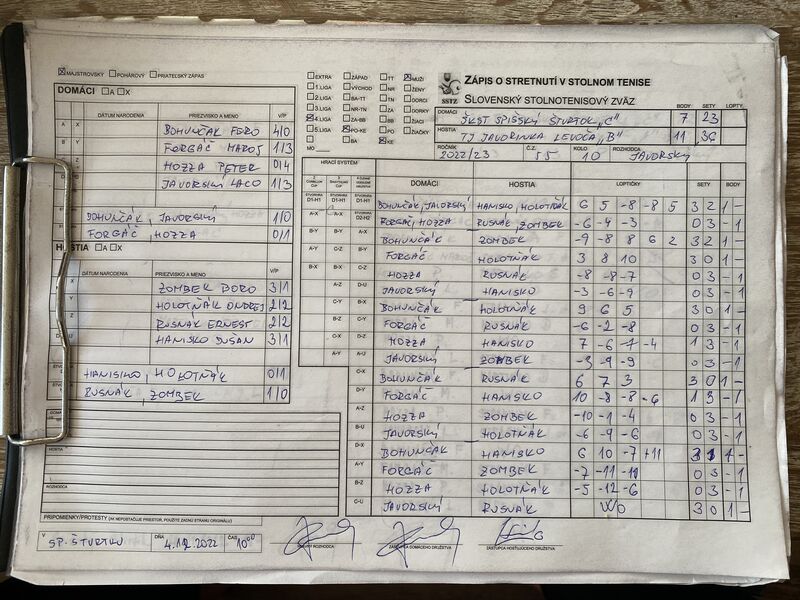 MAJSTROVSKÝ POHÁROVÝ PRIATEĽSKÝ ZÁPAS
DOMÁCI A X
DÁTUM NARODENIA PRIEZVISKO A MENO V/P
A X BOHUNČÁK FERO 4/0
B Y FORGÁČ MAROŠ 1/3
HOZZA PETER 0/4
JAVORSKÝ LACO 1/3
BOHUNČÁK, JAVORSKÝ 1/0
FORGÁČ, HOZZA 0/1
HOSTIA A X
DÁTUM NARODENIA PRIEZVISKO A MENO V/P
ZOMBEK BORO 3/1
HOLOTŇÁK ONDREJ 2/2
RUSNÁK ERNEST 2/2
HANISKO DUŠAN 3/1
HANISKO, HOLOTŇÁK 0/1
RUSNÁK, ZOMBEK 1/0
HOSTIA
ROZHODCA
PRIPOMIENKY/PROTESTY (AK NEPOSTAČUJE PRIESTOR, POUŽITE ZADNÚ STRANU ORIGINÁLU)
V SP. ŠTVRTKU DŇA 4.12.2022 ČAS 10:00
ZÁSTUPCA DOMÁCEHO DRUŽSTVA
ZÁSTUPCA HOSŤUJÚCEHO DRUŽSTVA
EXTRA ZÁPAD TT MUŽI
1.LIGA VÝCHOD NR ŽENY
2.LIGA BA-TT TN DORCI
3.LIGA NR-TN ZA DORKY
4.LIGA ZA-BB BB ŽIACI
5.LIGA PO-KE PO ŽIAČKY
BA KE
MO
SSTZ
ZÁPIS O STRETNUTÍ V STOLNOM TENISE
SLOVENSKÝ STOLNOTENISOVÝ ZVÄZ
BODY SETY LOPTY
DOMÁCI ŠKST SPIŠSKÝ ŠTVRTOK "C" 7 23
HOSTIA TJ JAVORINKA LEVOČA "B" 11 36
ROČNÍK 2022/23 Č.Z. 55 KOLO 10 ROZHODCA JAVORSKÝ
HRACÍ SYSTÉM
DOMÁCI HOSTIA LOPTIČKY SETY BODY
D1-H1 BOHUNČÁK, JAVORSKÝ HANISKO, HOLOTŇÁK 6 5 -8 -8 5 3 2 1 -
A-X FORGÁČ, HOZZA RUSNÁK, ZOMBEK -6 -4 -3 0 3 - 1
B-Y A-X BOHUNČÁK ZOMBEK -9 -8 8 6 2 3 2 1 -
A-Y C-Z B-Y FORGÁČ HOLOTŇÁK 3 8 10 3 0 1 -
B-X B-X C-Z HOZZA RUSNÁK -8 -8 -7 0 3 - 1
A-Z D-U JAVORSKÝ HANISKO -3 -6 -9 0 3 - 1
C-Y B-X BOHUNČÁK HOLOTŇÁK 9 6 5 3 0 1 -
FORGÁČ RUSNÁK -6 -2 -8 0 3 - 1
HOZZA HANISKO 7 -6 -7 -4 1 3 - 1
JAVORSKÝ ZOMBEK -3 -9 -9 0 3 - 1
C-X BOHUNČÁK RUSNÁK 6 7 3 3 0 1 -
D-Y FORGÁČ HANISKO 10 -8 -8 -6 1 3 - 1
A-Z HOZZA ZOMBEK -10 -1 -4 0 3 - 1
B-U JAVORSKÝ HOLOTŇÁK -6 -9 -6 0 3 - 1
D-X BOHUNČÁK HANISKO 6 10 -7 +11 3 1 1 -
A-Y FORGÁČ ZOMBEK -7 -11 -11 0 3 - 1
B-Z HOZZA HOLOTŇÁK -5 -12 -6 0 3 - 1
C-U JAVORSKÝ RUSNÁK W/O 3 0 1 -